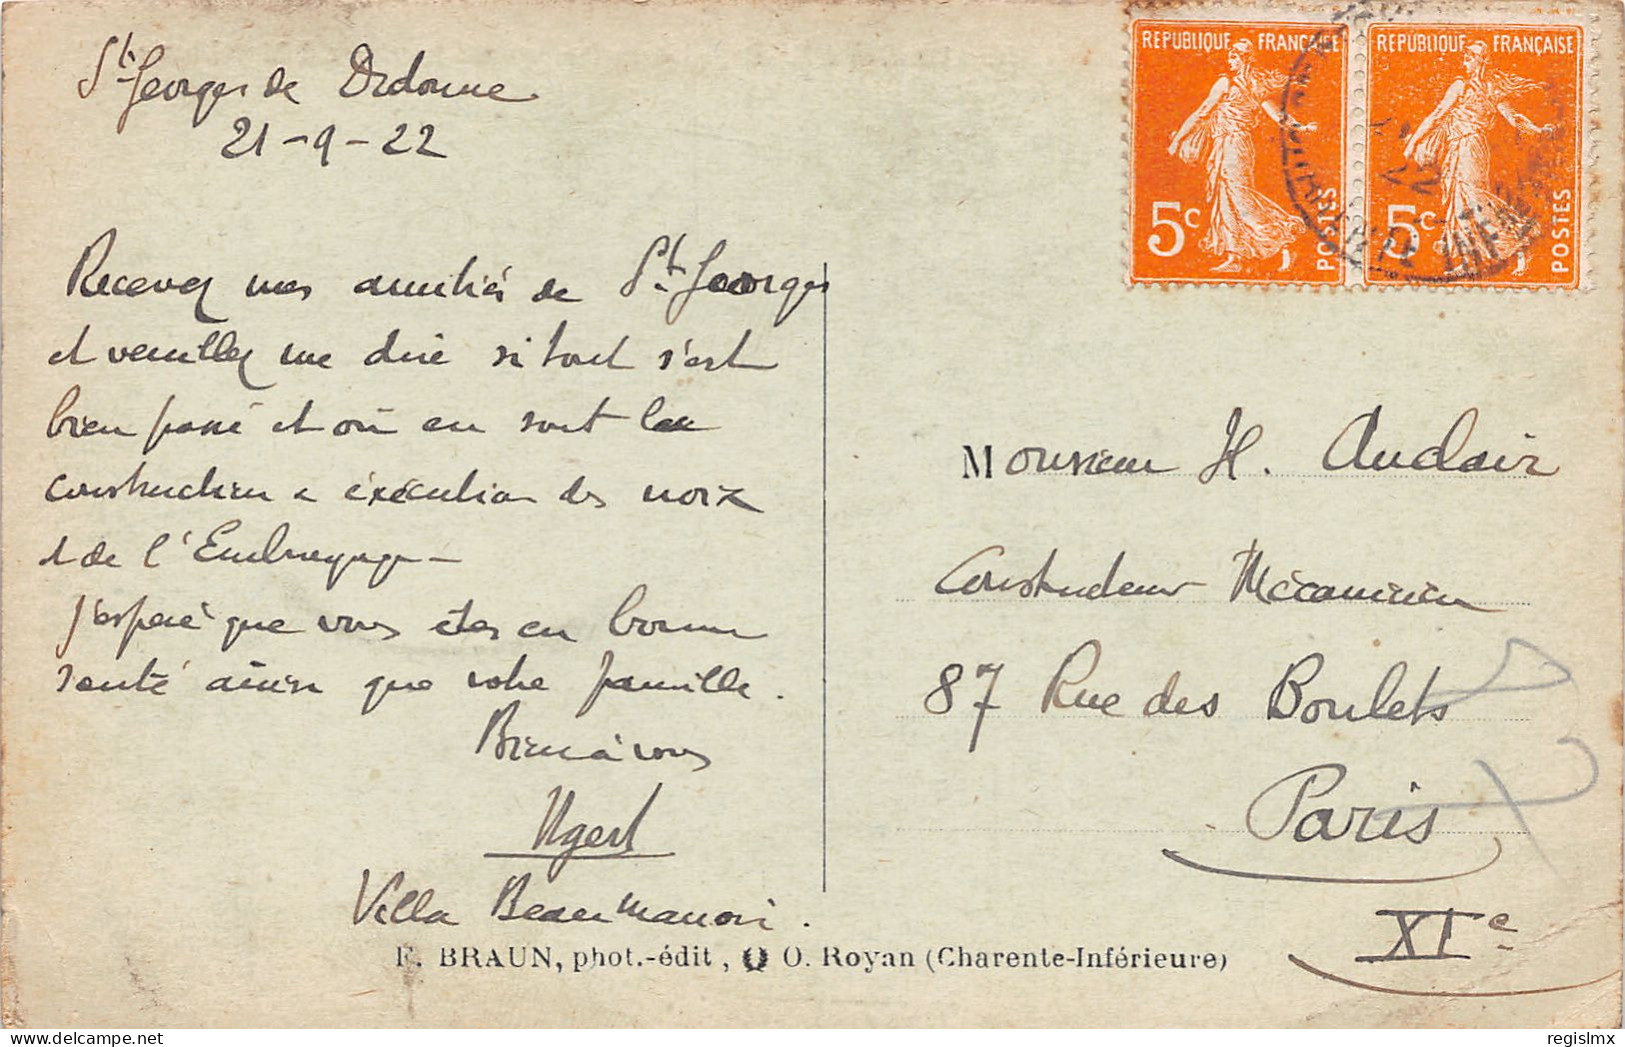 St Georges de Didonne
21-9-22
Recevez mes amitiés de St Georges
et veuillez me dire si tout s'est
bien passé et où en sont la
construction e éxécution des
et de l'Embrayage -
J'espère que vous êtes en bonne
santé ainsi que votre famille.
Bien à vous
Villa Beaumanoir.
REPUBLIQUE FRANÇAISE
5c
POSTES
REPUBLIQUE FRANÇAISE
5c
POSTES
Monsieur H. Auclair
Constructeur Mécanicien
87 Rue des Boulets
Paris
XIe
F. BRAUN, phot.-édit, O. Royan (Charente-Inférieure)
regislmx